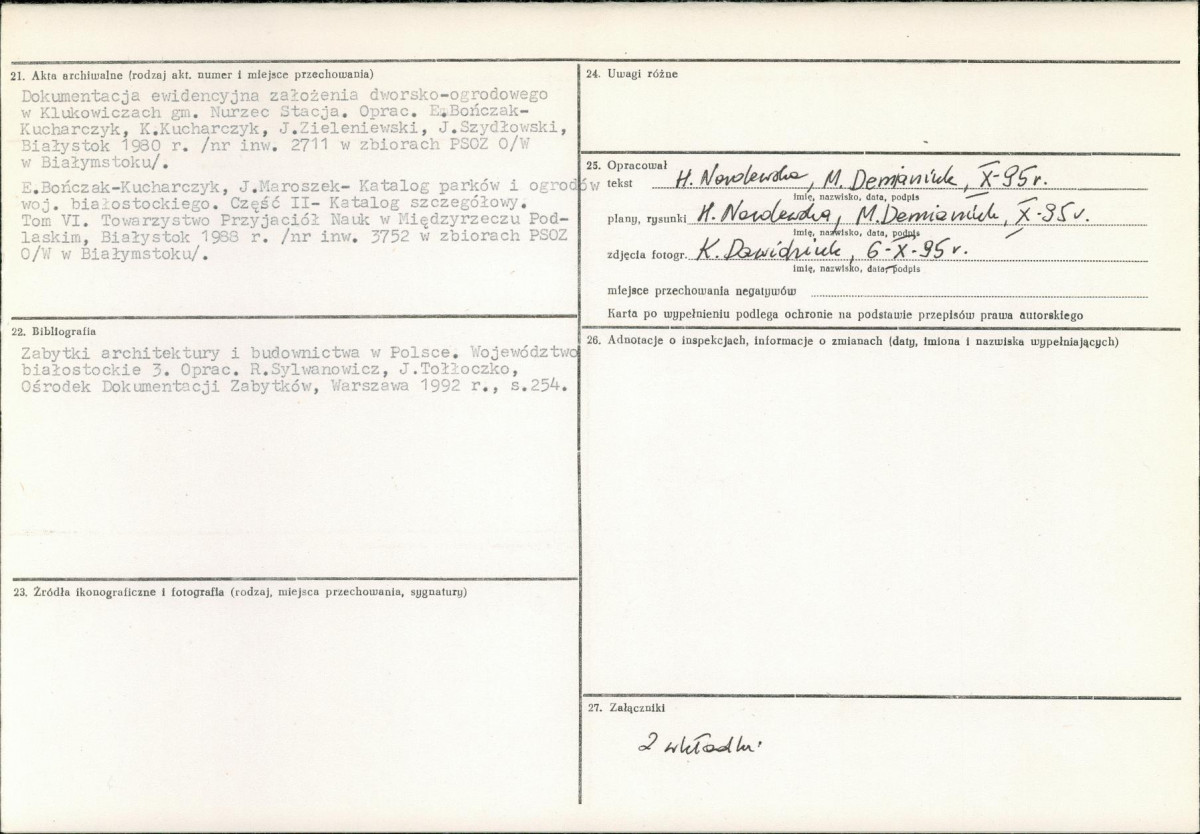 21. Akta archiwalne (rodzaj akt. numer i miejsce przechowania)
Dokumentacja ewidencyjna założenia dworsko-ogrodowego
w Klukowiczach gm. Nurzec Stacja. Oprac. E.Bończak-
Kucharczyk, K.Kucharczyk, J.Zieleniewski, J.Szydłowski,
Białystok 1980 r. /nr inw. 2711 w zbiorach PSOZ O/W
w Białymstoku/.
E.Bończak-Kucharczyk, J.Maroszek- Katalog parków i ogrodów
woj. białostockiego. Część II- Katalog szczegółowy.
Tom VI. Towarzystwo Przyjaciół Nauk w Międzyrzeczu Pod-
laskim, Białystok 1988 r. /nr inw. 3752 w zbiorach PSOZ
O/W w Białymstoku/.
22. Bibliografia
Zabytki architektury i budownictwa w Polsce. Województwo
białostockie 3. Oprac. R.Sylwanowicz, J.Tołłoczko,
Ośrodek Dokumentacji Zabytków, Warszawa 1992 r., s.254.
23. Źródła ikonograficzne i fotografia (rodzaj, miejsca przechowania, sygnatury)
24. Uwagi różne
25. Opracował
tekst H. , M. Demianiuk, X-95 r.
imię, nazwisko, data, podpis
plany, rysunki H. , M. Demianiuk, X-95 r.
imię, nazwisko, data, podpis
zdjęcia fotogr. K. Dawidziuk, 6-X-95 r.
imię, nazwisko, data, podpis
miejsce przechowania negatywów
Karta po wypełnieniu podlega ochronie na podstawie przepisów prawa autorskiego
26. Adnotacje o inspekcjach, informacje o zmianach (daty, imiona i nazwiska wypełniających)
27. Załączniki
2 wkładki